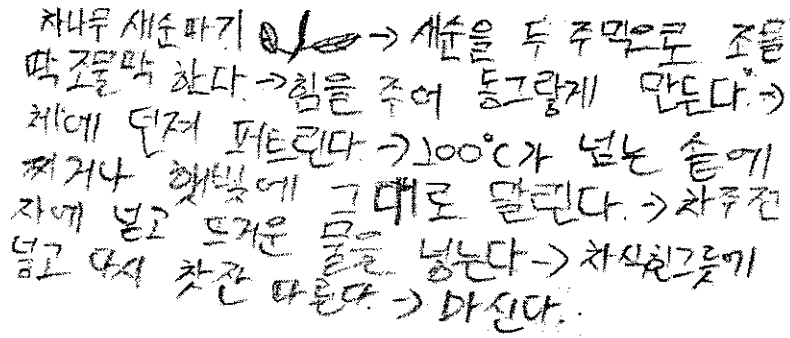 차나무 새순따기 → 새순을 두 주먹으로 조물
딱 조물딱 한다. → 힘을 주어 동그랗게 만든다. →
체에 던져 퍼트린다. → 100°C가 넘는 솥에
찌거나 햇빛에 그대로 말린다. → 차주전
자에 넣고 뜨거운 물을 넣는다 → 차식힘그릇에
넣고 다시 찻잔 따른다. → 마신다.